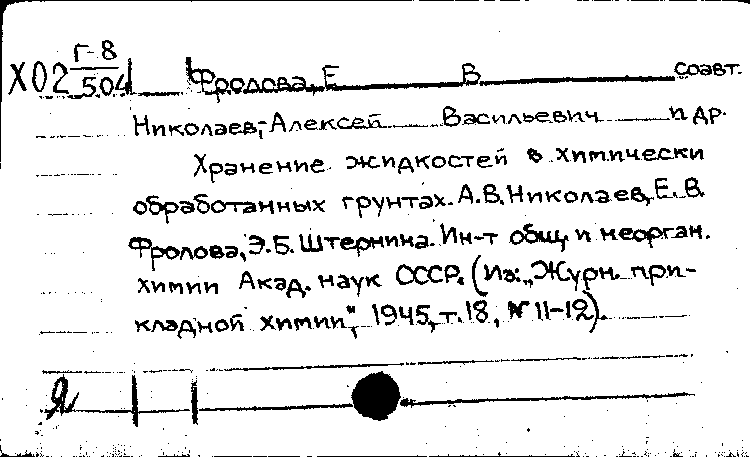 Х02 Г-8/504 Фролова, Е. В. соавт.
Николаев, Алексей Васильевич и др.
Хранение жидкостей в химически
обработанных грунтах. А.В. Николаев, Е.В.
Фролова, Э.Б. Штернина. Ин-т общ. и неорган.
химии Акад. наук СССР. (Из: „Журн. при-
кладной химии", 1945, т. 18, № 11-12).
Я